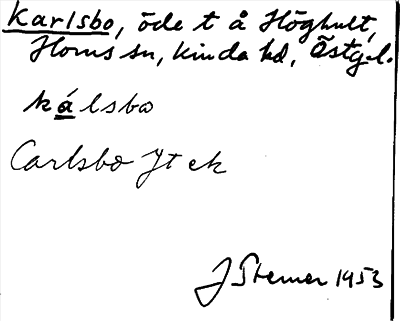 Karlsbo, öde t å Höghult,
Horns sn, Kinda hd, Östg.l.
kálsbo
Carlsbo Jt ek
J Sterner 1953